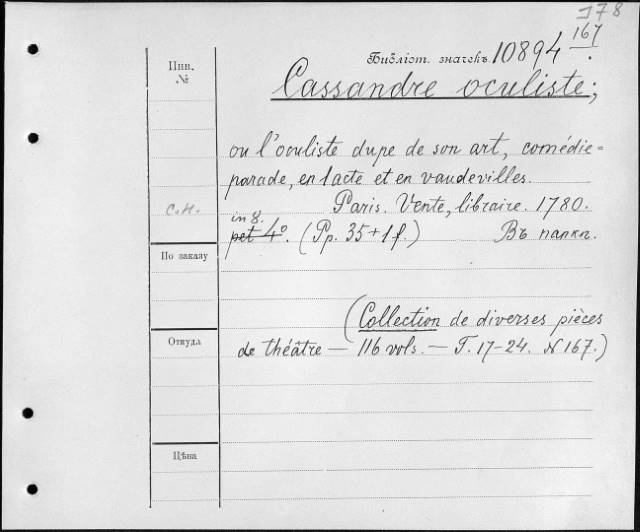 178
Библіот. значекъ. 10894 167
Инв. №
Cassandre oculiste;
ou l'oculiste dupe de son art, comédie=
parade, en 1 acte et en vaudevilles.
С.Н.
Paris. Vente, libraire. 1780.
in 8.
pet 4º. (Pp. 35+1f.) Въ папкѣ.
По заказу
(Collection de diverses pièces
Откуда
de théâtre — 116 vols. — T. 17-24. N 167.)
Цѣна